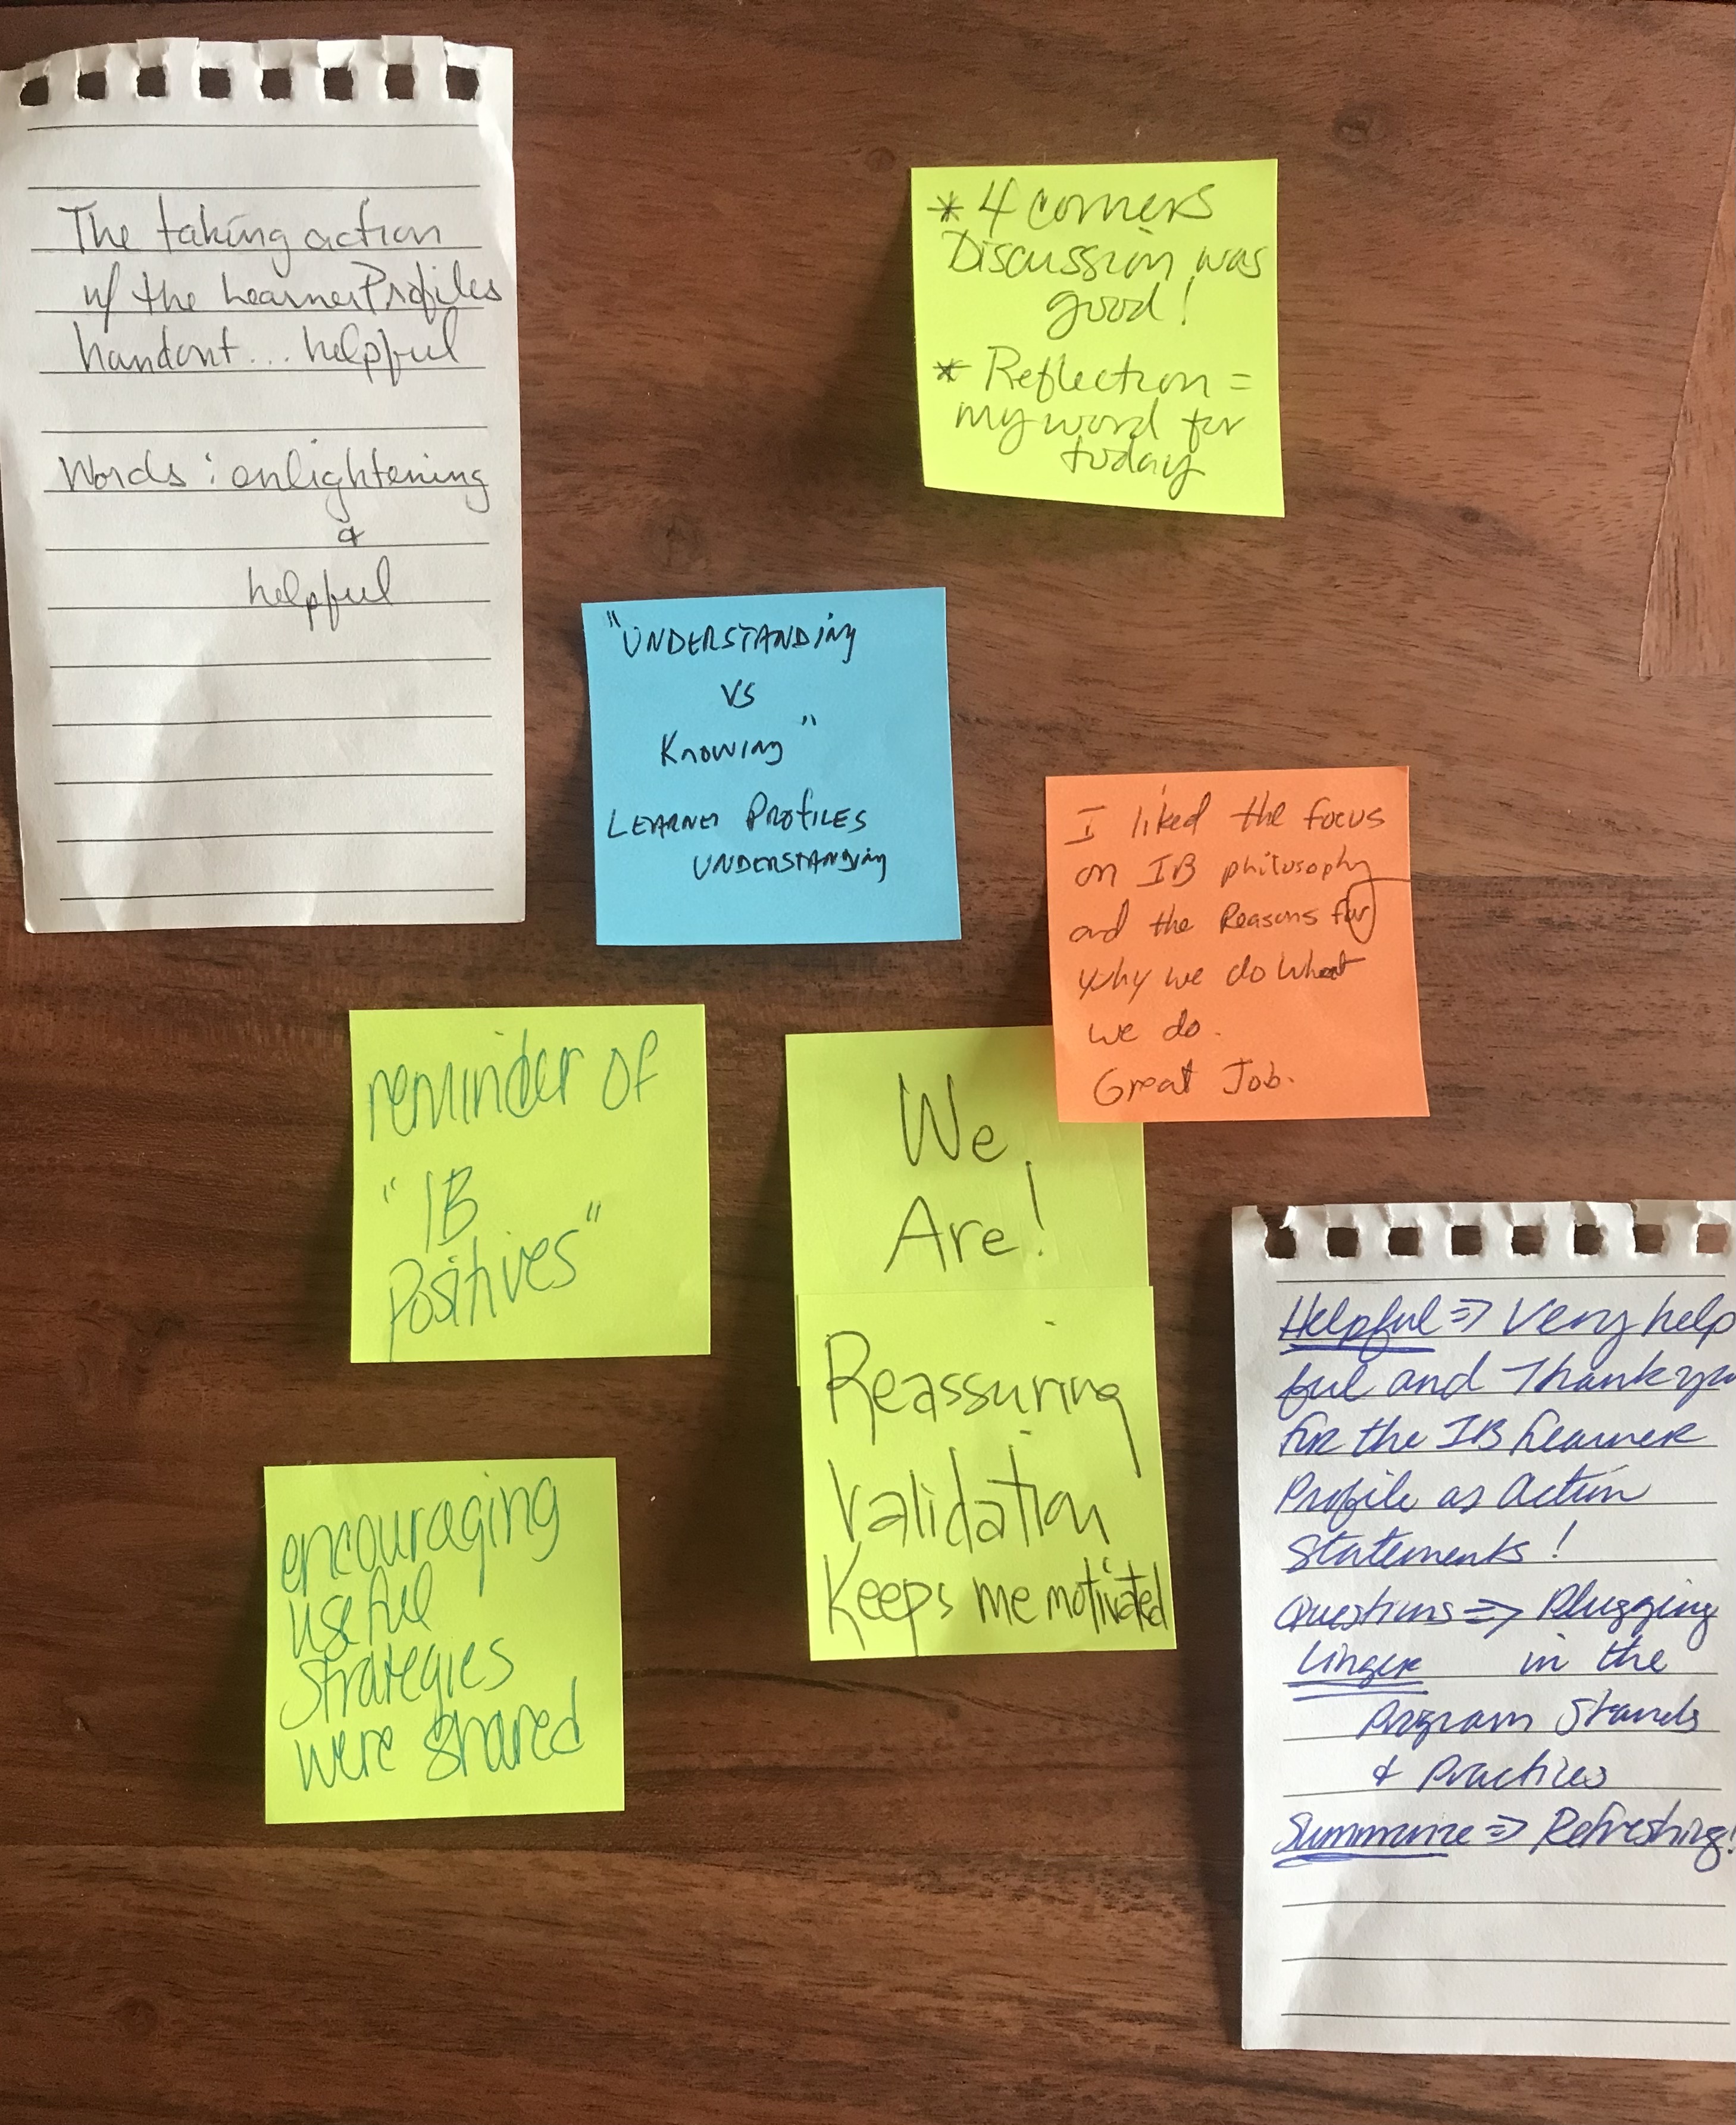 The taking action
w/ the Learner Profiles
handout... helpful
Words: enlightening
&
helpful
* 4 corners
Discussion was
good!
* Reflection =
my word for
today
"UNDERSTANDING
VS
Knowing"
LEARNER PROFILES
UNDERSTANDING
I liked the focus
on IB philosophy
and the Reasons for
why we do what
we do.
Great Job.
reminder of
"IB
Positives"
We
Are!
Reassuring
Validation
Keeps me motivated
encouraging
useful
strategies
were shared
Helpful => Very help
ful and Thank you
for the IB Learner
Profile as Action
Statements!
Questions => Plugging
Linger in the
Program Stands
& Practices
Summarize => Refreshing!